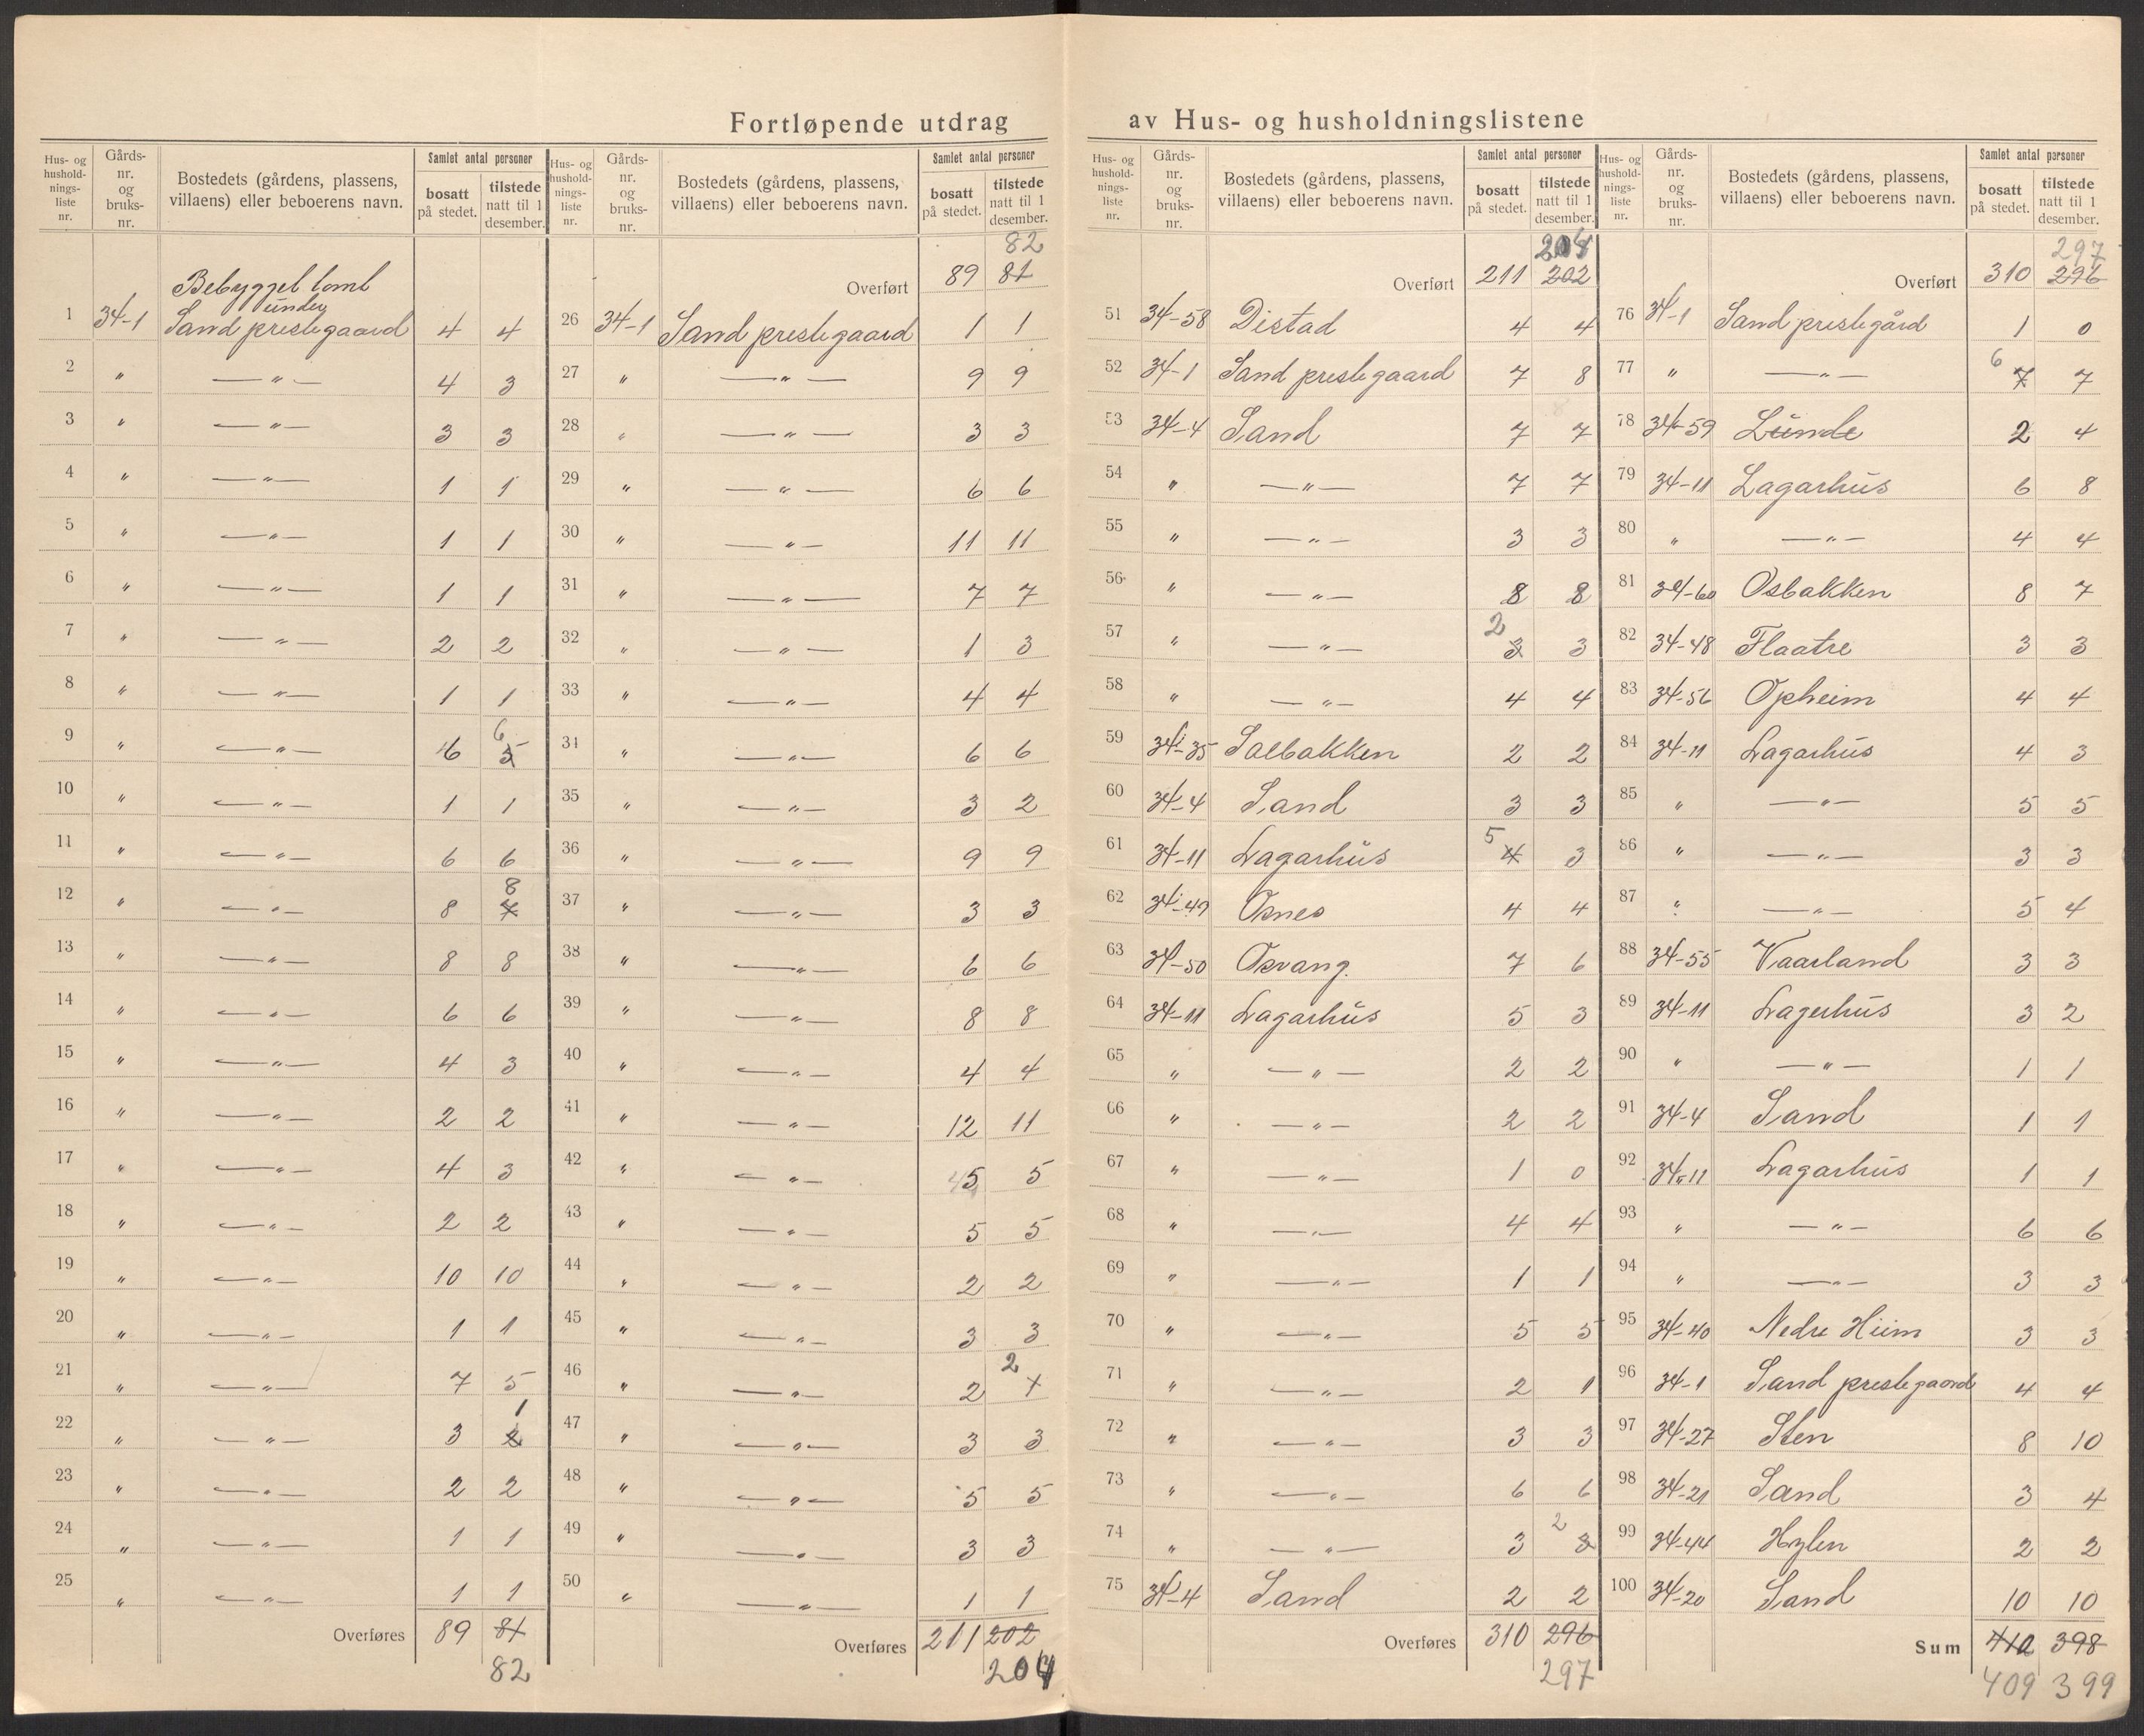 Fortløpende utdrag av Hus- og husholdningslistene
Hus- og hushold-nings-liste nr. Gårds-nr. og bruks-nr. Bostedets (gårdens, plassens, villaens) eller beboerens navn. Samlet antal personer bosatt på stedet. tilstede natt til 1 desember.
Bebygget tomt
under
1 34-1 Sand prestegaard 4 4
2 " —"— 4 3
3 " —"— 3 3
4 " —"— 1 1
5 " —"— 1 1
6 " —"— 1 1
7 " —"— 2 2
8 " —"— 1 1
9 " —"— 6 5 6
10 " —"— 1 1
11 " —"— 6 6
12 " —"— 8 7 8
13 " —"— 8 8
14 " —"— 6 6
15 " —"— 4 3
16 " —"— 2 2
17 " —"— 4 3
18 " —"— 2 2
19 " —"— 10 10
20 " —"— 1 1
21 " —"— 7 5
22 " —"— 3 2 1
23 " —"— 2 2
24 " —"— 1 1
25 " —"— 1 1
Overføres 89 81
82
Hus- og hushold-nings-liste nr. Gårds-nr. og bruks-nr. Bostedets (gårdens, plassens, villaens) eller beboerens navn. Samlet antal personer bosatt på stedet. tilstede natt til 1 desember.
82
Overført 89 81
26 34-1 Sand prestegaard 1 1
27 " —"— 9 9
28 " —"— 3 3
29 " —"— 6 6
30 " —"— 11 11
31 " —"— 7 7
32 " —"— 1 3
33 " —"— 4 4
34 " —"— 6 6
35 " —"— 3 2
36 " —"— 9 9
37 " —"— 3 3
38 " —"— 6 6
39 " —"— 8 8
40 " —"— 4 4
41 " —"— 12 11
42 " —"— 5 5
43 " —"— 5 5
44 " —"— 2 2
45 " —"— 3 3
46 " —"— 2 1 2
47 " —"— 3 3
48 " —"— 5 5
49 " —"— 3 3
50 " —"— 1 1
Overføres 211 202
204
Hus- og hushold-nings-liste nr. Gårds-nr. og bruks-nr. Bostedets (gårdens, plassens, villaens) eller beboerens navn. Samlet antal personer bosatt på stedet. tilstede natt til 1 desember.
204
Overført 211 202
51 34-58 Distad 4 4
52 34-1 Sand prestegaard 7 8
53 34-4 Sand 7 7
54 " —"— 7 7
55 " —"— 3 3
56 " —"— 8 8
57 " —"— 2 3 3
58 " —"— 4 4
59 34-35 Solbakken 2 2
60 34-4 Sand 3 3
61 34-11 Lagarhus 5 4 3
62 34-49 Osnes 4 4
63 34-50 Osvang. 7 6
64 34-11 Lagarhus 5 3
65 " —"— 2 2
66 " —"— 2 2
67 " —"— 1 0
68 " —"— 4 4
69 " —"— 1 1
70 " —"— 5 5
71 " —"— 2 1
72 " —"— 3 3
73 " —"— 6 6
74 " —"— 3 2 3
75 34-4 Sand 2 2
Overføres 310 296
297
Hus- og hushold-nings-liste nr. Gårds-nr. og bruks-nr. Bostedets (gårdens, plassens, villaens) eller beboerens navn. Samlet antal personer bosatt på stedet. tilstede natt til 1 desember.
297
Overført 310 296
76 34-1 Sand prestegård 1 0
77 " —"— 6 7 7
78 34-59 Lunde 2 4
79 34-11 Lagarhus 6 8
80 " —"— 4 4
81 34-60 Osbakken 8 7
82 34-48 Flaatre 3 3
83 34-56 Opheim 4 4
84 34-11 Lagarhus 4 3
85 " —"— 5 5
86 " —"— 3 3
87 " —"— 5 4
88 34-55 Vaarland 3 3
89 34-11 Lagerhus 3 2
90 " —"— 1 1
91 34-4 Sand 1 1
92 34-11 Lagarhus 1 1
93 " —"— 6 6
94 " —"— 3 3
95 34-40 Nedre Heim 3 3
96 34-1 Sand prestegaard 4 4
97 34-27 Sten 8 10
98 34-21 Sand 3 4
99 34-44 Hylen 2 2
100 34-20 Sand 10 10
Sum 410 398
409 399